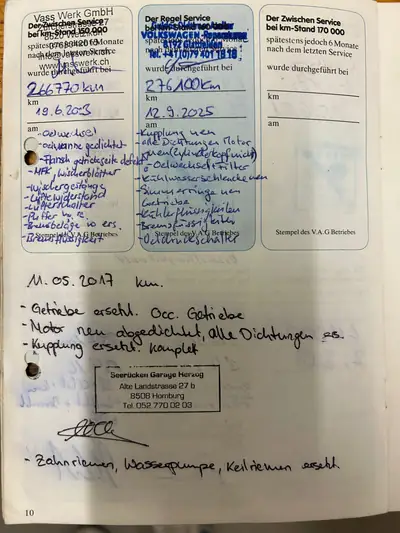 Vass Werk GmbH
Der Zwischen Service
bei km-Stand 150 000
spätestens jedoch 6 Monate
nach dem letzten Service
www.vasswerk.ch
wurde durchgeführt bei
266770km
km
19.6.2023
am
- Oelwechsel
- oelwanne gedichtet
- Flansch getriebeseite defekt
- MFK Wischerblätter
- wischergestänge
- Lüfterwiderstand
- Lüfterschalter
- Bremsbeläge vo ers.
- Bremsflüssigkeit
Stempel des V.A.G Betriebes
Der Regel Service
VOLKSWAGEN - Reparaturen
Tel. +41(0)79 401 18 18
wurde durchgeführt bei
276100km
km
12.9.2025
am
- Kupplung neu
- alle Dichtungen Motor
neu (Zylinderkopf nicht)
- Oelwechsel + Filter
- Kühlwasserschläuche neu
- Simmerringe neu
Getriebe
- Kühlerflüssigkeiten
- Bremsflüssigkeiten
- Oeldruckschalter
Der Zwischen Service
bei km-Stand 170 000
spätestens jedoch 6 Monate
nach dem letzten Service
wurde durchgeführt bei
km
am
Stempel des V.A.G Betriebes
11.05.2017 km.
- Getriebe ersetzt. Occ. Getriebe
- Motor neu abgedichtet, alle Dichtungen ers.
- Kupplung ersetzt. Komplet
Seerücken Garage Herzog
Alte Landstrasse 27 b
8506 Homburg
Tel. 052 770 02 03
- Zahnriemen, Wasserpumpe, Keilriemen ersetzt.
10